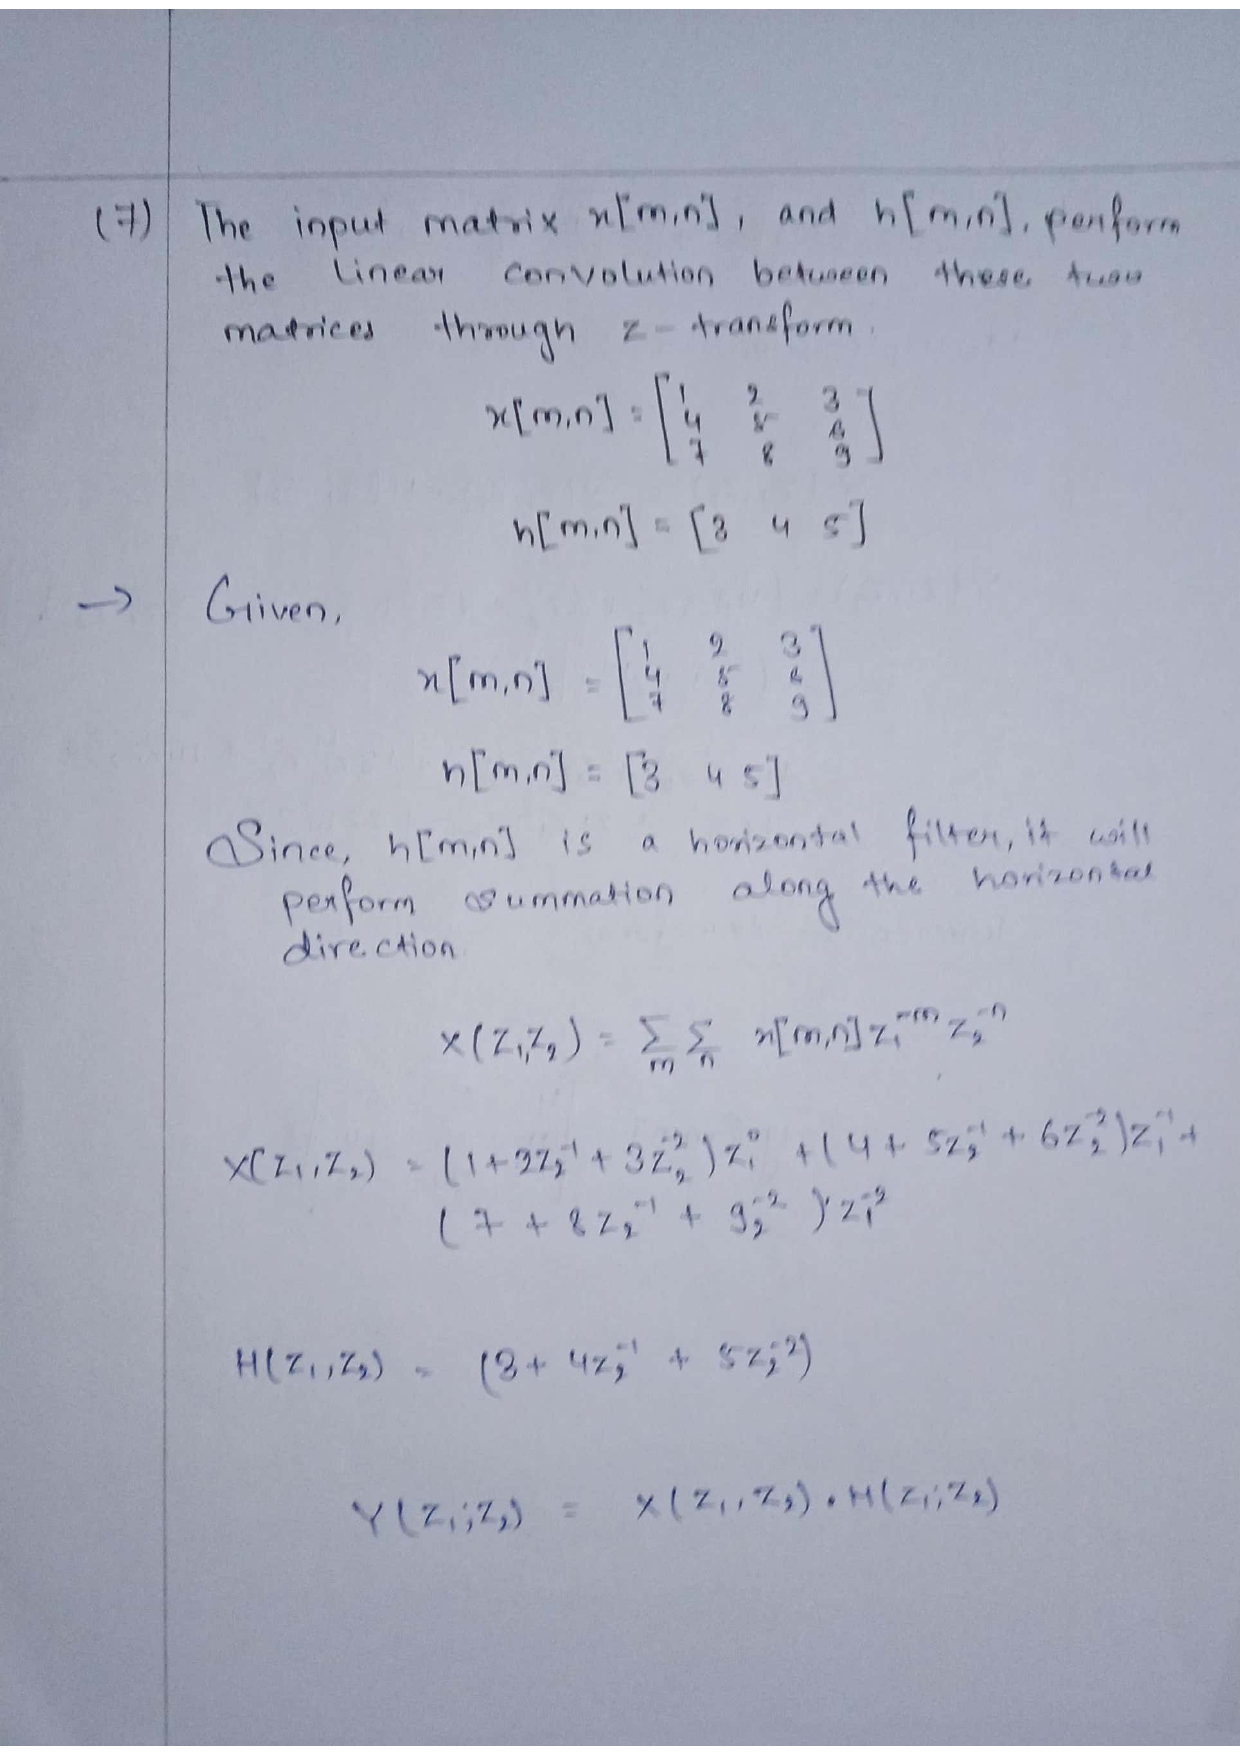 (7) The input matrix x[m,n], and h[m,n], perform
the Linear convolution between these two
matrices through z-transform.
x[m,n] = [1 2 3
4 5 6
7 8 9]
h[m,n] = [3 4 5]
→ Given,
x[m,n] = [1 2 3
4 5 6
7 8 9]
h[m,n] = [3 4 5]
Since, h[m,n] is a horizontal filter, it will
perform summation along the horizontal
direction
X(Z₁,Z₂) = Σₘ Σₙ x[m,n] z₁⁻ᵐ z₂⁻ⁿ
X(Z₁,Z₂) = (1+2Z₂⁻¹ + 3Z₂⁻²) Z₁⁰ + (4 + 5Z₂⁻¹ + 6Z₂⁻²)Z₁⁻¹ +
(7 + 8Z₂⁻¹ + 9₂⁻²) Z₁⁻²
H(Z₁,Z₂) = (3 + 4Z₂⁻¹ + 5Z₂⁻²)
Y(Z₁;Z₂) = X(Z₁,Z₂) . H(Z₁;Z₂)